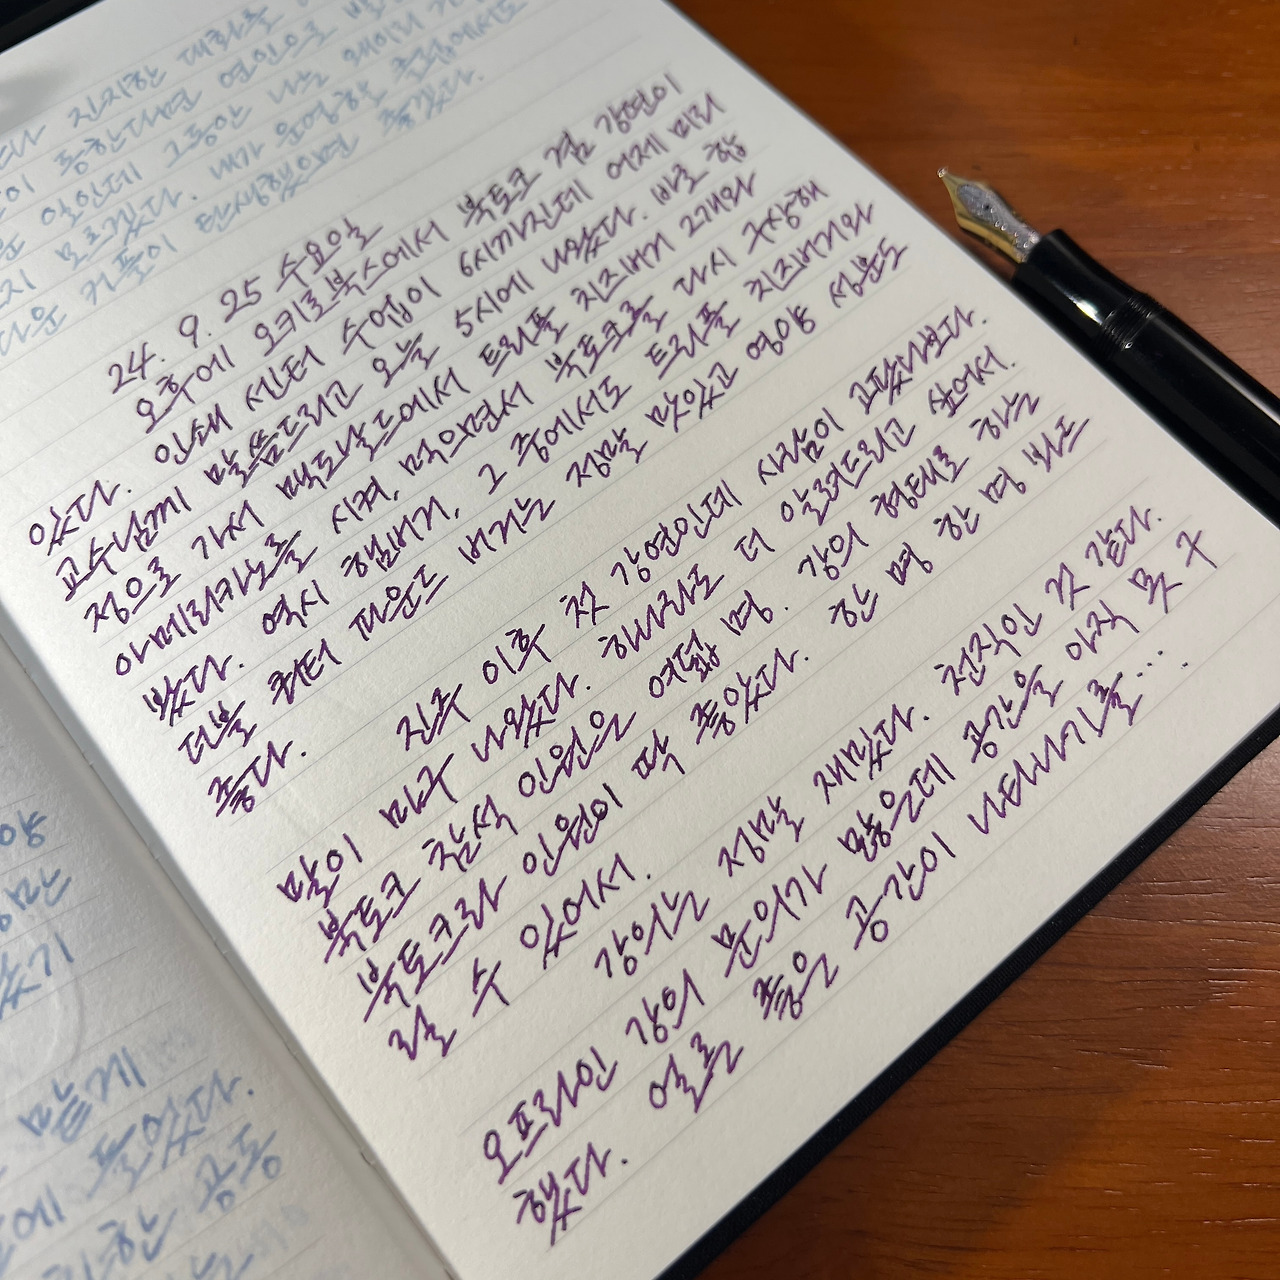 진지한 대화를
통한다면 연인으로
일인데 그동안 나는 왜이리
모르겠다. 내가 운영하는 모임에서도
다운 커플이 탄생했으면 좋겠다.
24. 9. 25 수요일
오후에 오키로북스에서 북토크 겸 강연이
있다. 인재 센터 수업이 6시까지인데 어제 미리
교수님께 말씀드리고 오늘 5시에 나왔다. 바로 합
정으로 가서 맥도날드에서 트리플 치즈버거 2개와
아메리카노를 시켜, 먹으면서 북토크를 다시 구상해
봤다. 역시 햄버거, 그 중에서도 트리플 치즈버거와
더블 쿼터 파운드 버거는 정말 맛있고 영양 성분도
좋다.
진주 이후 첫 강연인데 사람이 고팠나보다.
말이 마구 나왔다. 하나라도 더 알려드리고 싶어서.
북토크 참석 인원은 여덟 명. 강의 형태로 하는
북토크라 인원이 딱 좋았다. 한 명 한 명 바로
릴 수 있어서.
강의는 정말 재밌다. 천직인 것 같다.
오프라인 강의 문의가 많은데 공간을 아직 못 구
했다. 얼른 좋은 공간이 나타나기를....
맡게
들었다.
공동